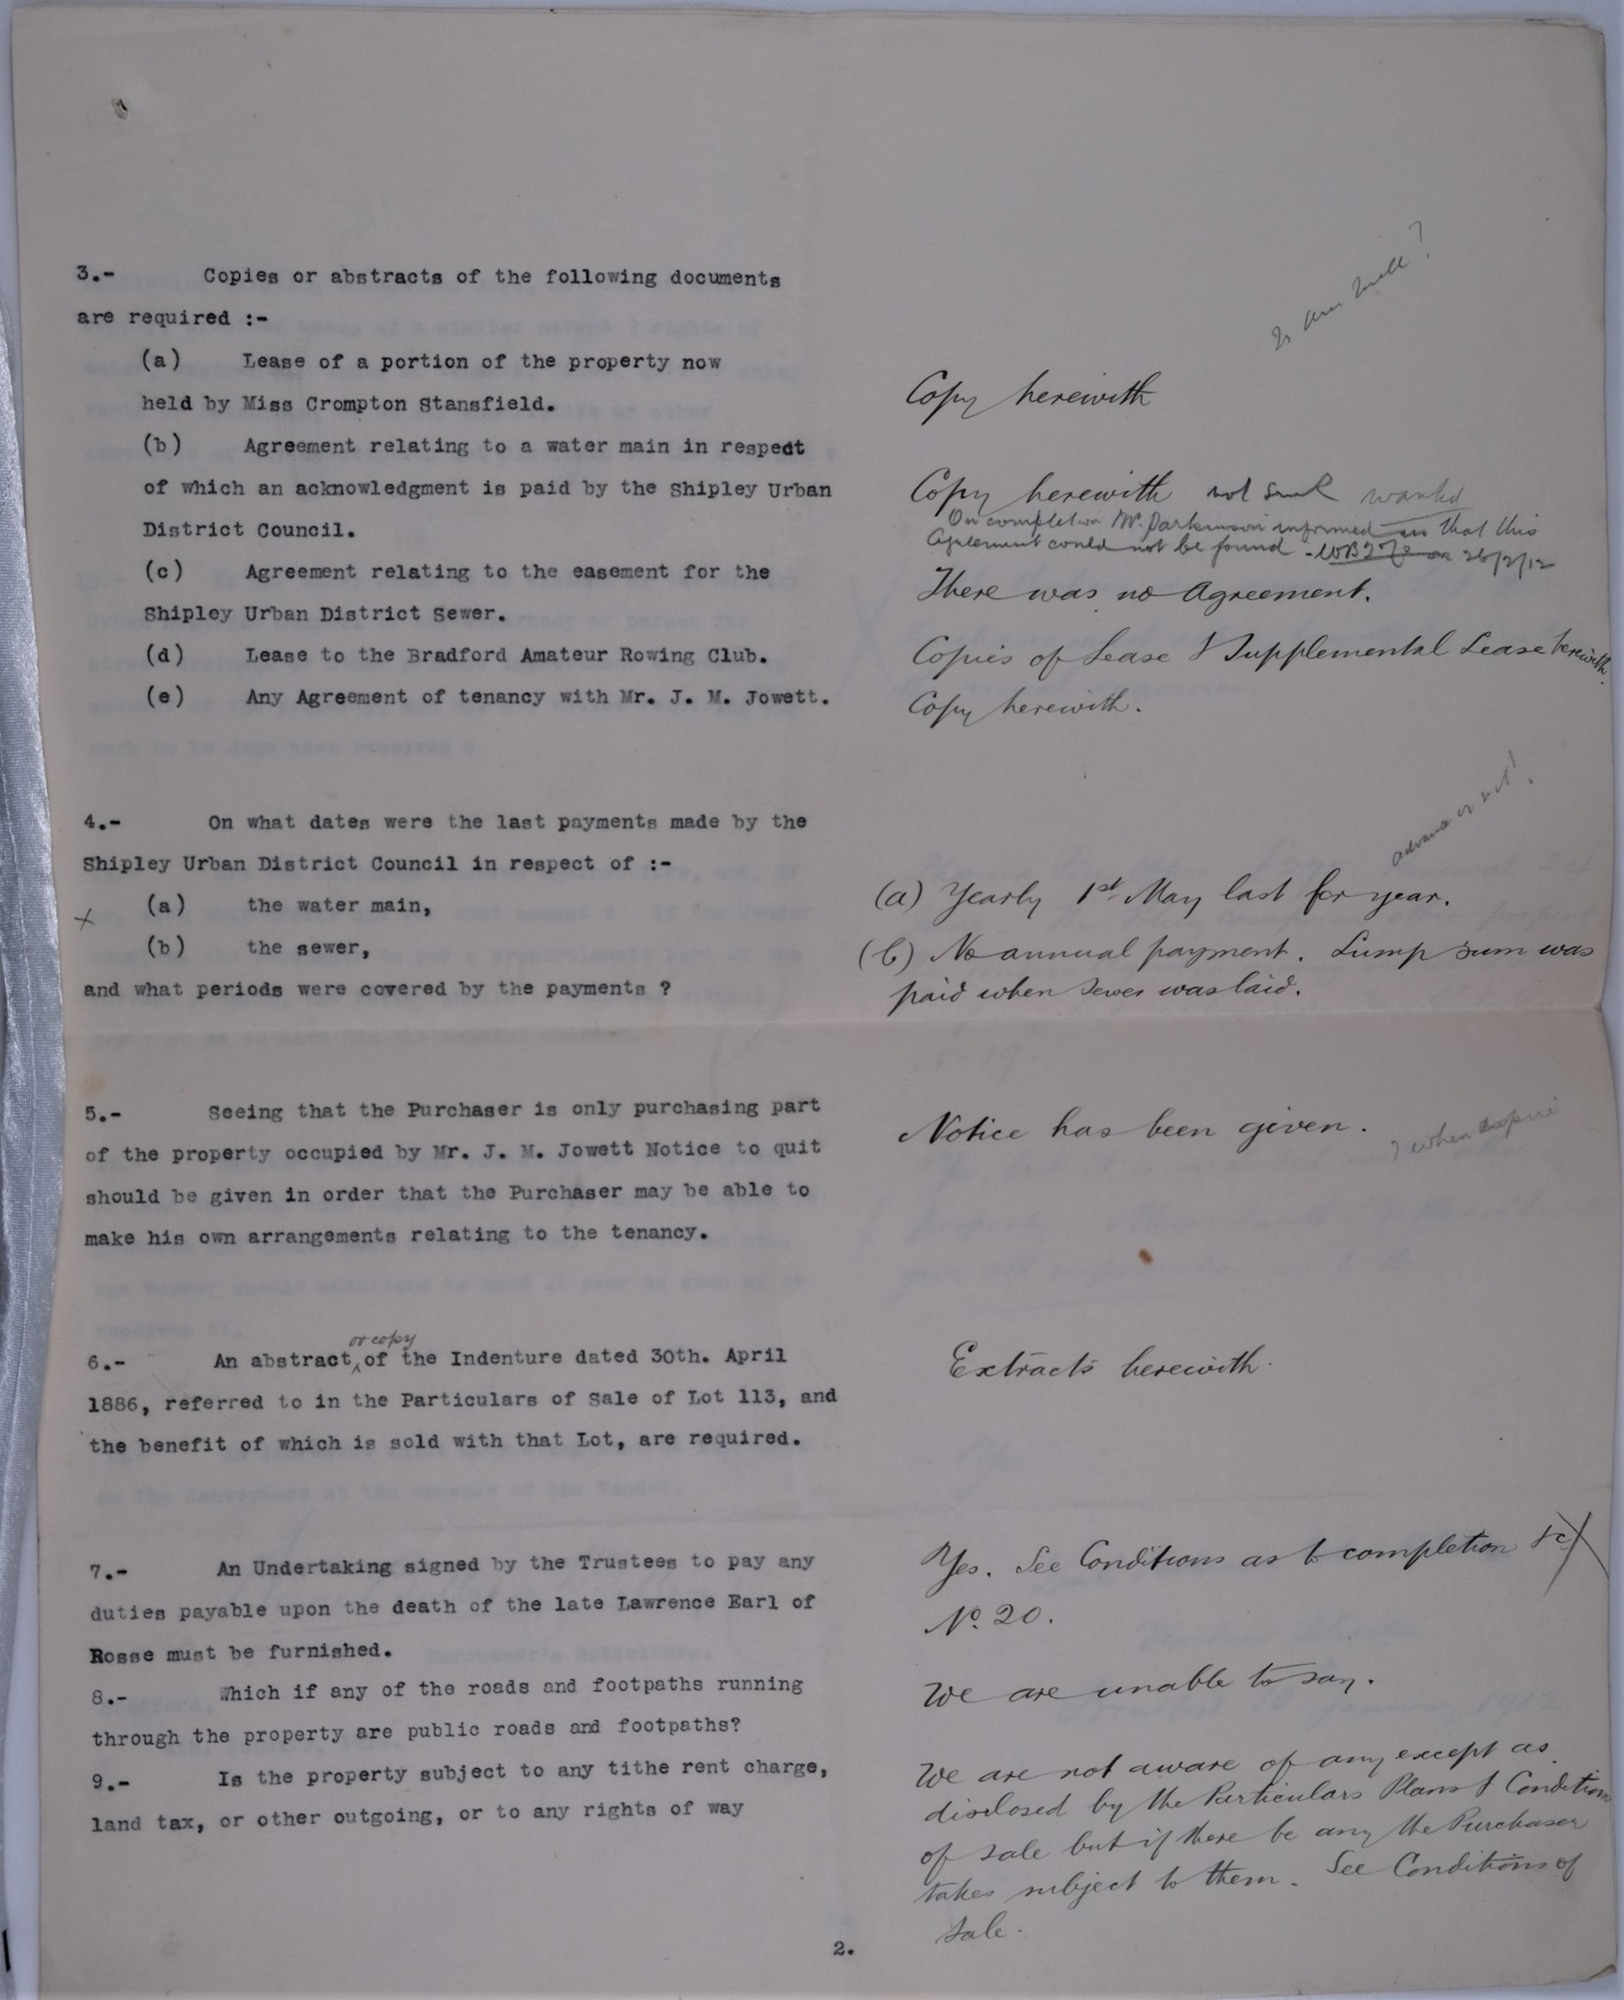 3.- Copies or abstracts of the following documents
are required :-
(a) Lease of a portion of the property now
held by Miss Crompton Stansfield.
Copy herewith
(b) Agreement relating to a water main in respect
of which an acknowledgment is paid by the Shipley Urban
District Council.
Copy herewith not sent wanted
On completion Mr. Parkinson informed us that this
Agreement could not be found - 26/2/12
(c) Agreement relating to the easement for the
Shipley Urban District Sewer.
There was no Agreement.
(d) Lease to the Bradford Amateur Rowing Club.
Copies of Lease & Supplemental Lease herewith.
(e) Any Agreement of tenancy with Mr. J. M. Jowett.
Copy herewith.
4.- On what dates were the last payments made by the
Shipley Urban District Council in respect of :-
advance or not?
x (a) the water main,
(a) Yearly 1st May last for year.
(b) the sewer,
and what periods were covered by the payments ?
(b) No annual payment. Lump sum was
paid when sewer was laid.
5.- Seeing that the Purchaser is only purchasing part
of the property occupied by Mr. J. M. Jowett Notice to quit
should be given in order that the Purchaser may be able to
make his own arrangements relating to the tenancy.
Notice has been given.
? when expire
6.- An abstract or copy of the Indenture dated 30th. April
1886, referred to in the Particulars of Sale of Lot 113, and
the benefit of which is sold with that Lot, are required.
Extracts herewith.
7.- An Undertaking signed by the Trustees to pay any
duties payable upon the death of the late Lawrence Earl of
Rosse must be furnished.
Yes. See Conditions as to completion &c
No. 20.
8.- Which if any of the roads and footpaths running
through the property are public roads and footpaths?
We are unable to say.
9.- Is the property subject to any tithe rent charge,
land tax, or other outgoing, or to any rights of way
We are not aware of any except as
disclosed by the Particulars Plans & Conditions
of sale but if there be any the Purchaser
takes subject to them. See Conditions of
Sale.
2.